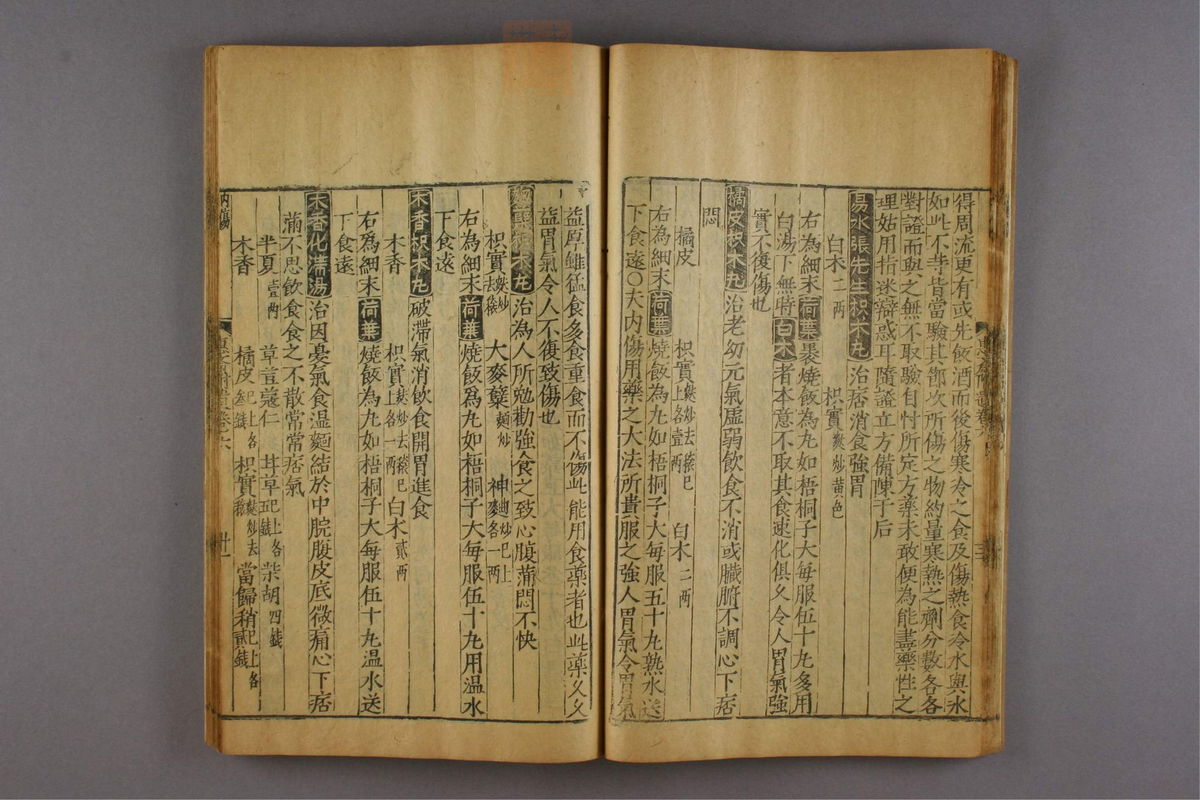 得周流更有或先飲酒而後傷寒冷之食及傷熱食冷水與氷
如此不等皆當驗其節次所傷之物約量寒熱之劑分數各各
對證而與之無不取驗自忖所定方藥未敢便為能盡藥性之
理姑用指迷辯惑耳隨證立方備陳于后
易水張先生枳朮丸 治痞消食強胃
白朮二兩 枳實麩炒黃色
右為細末荷葉褁燒飯為丸如梧桐子大每服伍十丸多用
白湯下無時白朮者本意不取其食速化但久令人胃氣強
實不復傷也
橘皮枳朮丸 治老幼元氣虛弱飲食不消或臟腑不調心下痞
悶
橘皮 枳實麩炒去穣已上各壹兩 白朮二兩
右為細末荷葉燒飯為丸如梧桐子大每服五十丸熟水送
下食遠〇夫内傷用藥之大法所貴服之強人胃氣令胃氣
益厚雖猛食多食重食而不傷此能用食藥者也此藥久久
益胃氣令人不復致傷也
枳朮丸 治為人所勉勸強食之致心腹滿悶不快
枳實麩炒去穣 大麥蘗麺炒 神麯炒已上各一兩
右為細末荷葉燒飯為丸如梧桐子大每服伍十丸用温水
下食遠
木香枳朮丸 破滯氣消飲食開胃進食
木香 枳實麩炒去穣已上各一兩 白朮貳兩
右為細末荷葉燒飯為丸如梧桐子大每服伍十丸温水送
下食遠
木香化滯湯 治因憂氣食温麵結於中脘腹皮底微痛心下痞
滿不思飲食食之不散常常痞氣
半夏壹兩 草荳蔲仁 甘草已上各 柴胡四錢
木香 橘皮已上各 枳實麩炒去穣 當歸稍已上各貳錢